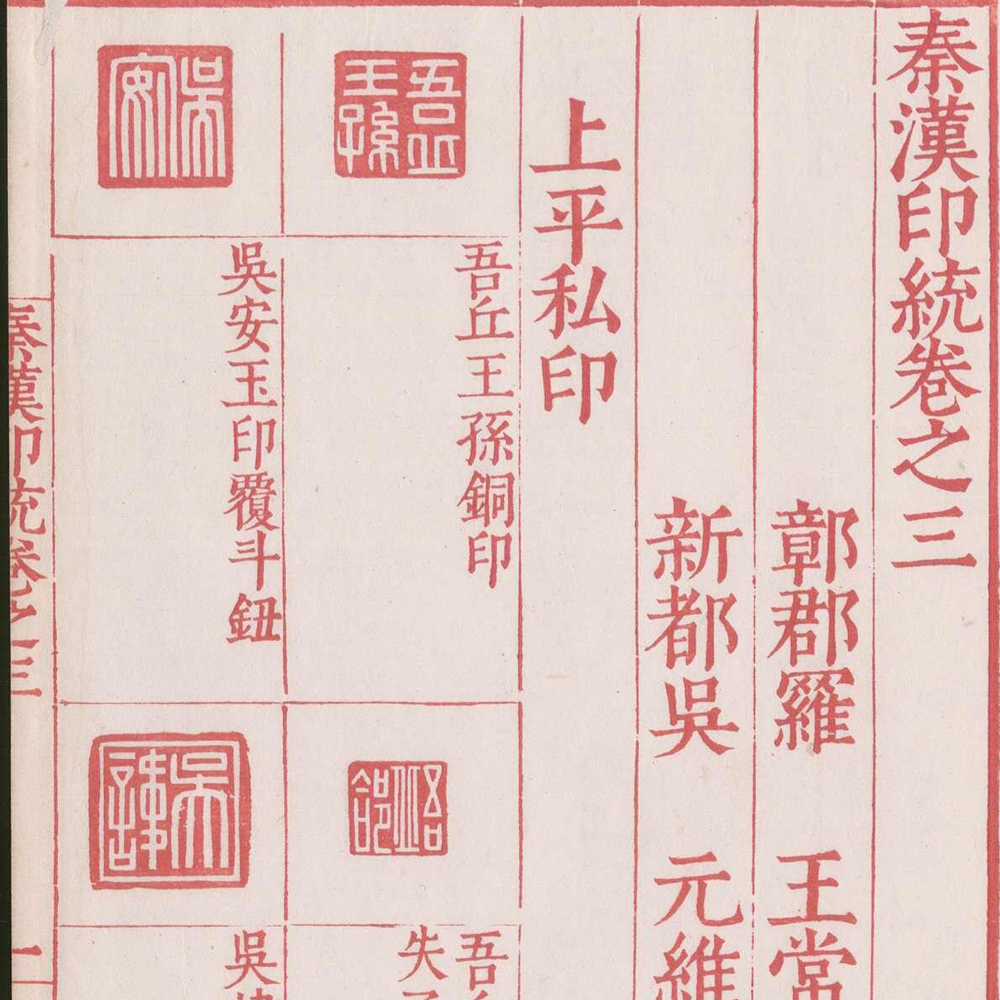 秦漢印統卷之三
鄣郡羅 王常
新都吳 元維
上平私印
吾丘王孫
吾丘王孫銅印
吳安
吳安玉印覆斗鈕
吾
失
吳
秦漢印統卷之三
一